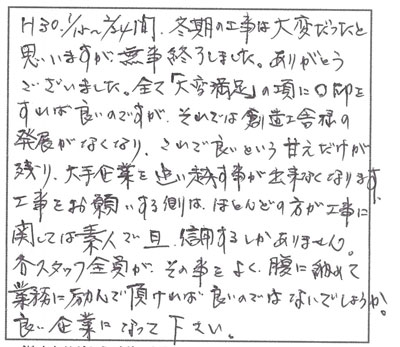 H30.1/15~2/24間、冬期の工事は大変だったと
思いますが無事終了しました。ありがとう
ございました。全て「大変満足」の項に○印を
すれば良いのですが、それでは創造工舎様の
発展がなくなり、これで良いという甘えだけが
残り、大手企業を追い越す事が出来なくなります。
工事をお願いする側は、ほとんどの方が工事に
関しては素人で且、信用するしかありません。
各スタッフ全員が、その事をよく腹に納めて
業務に励んで頂ければ良いのではないでしょうか。
良い企業になって下さい。